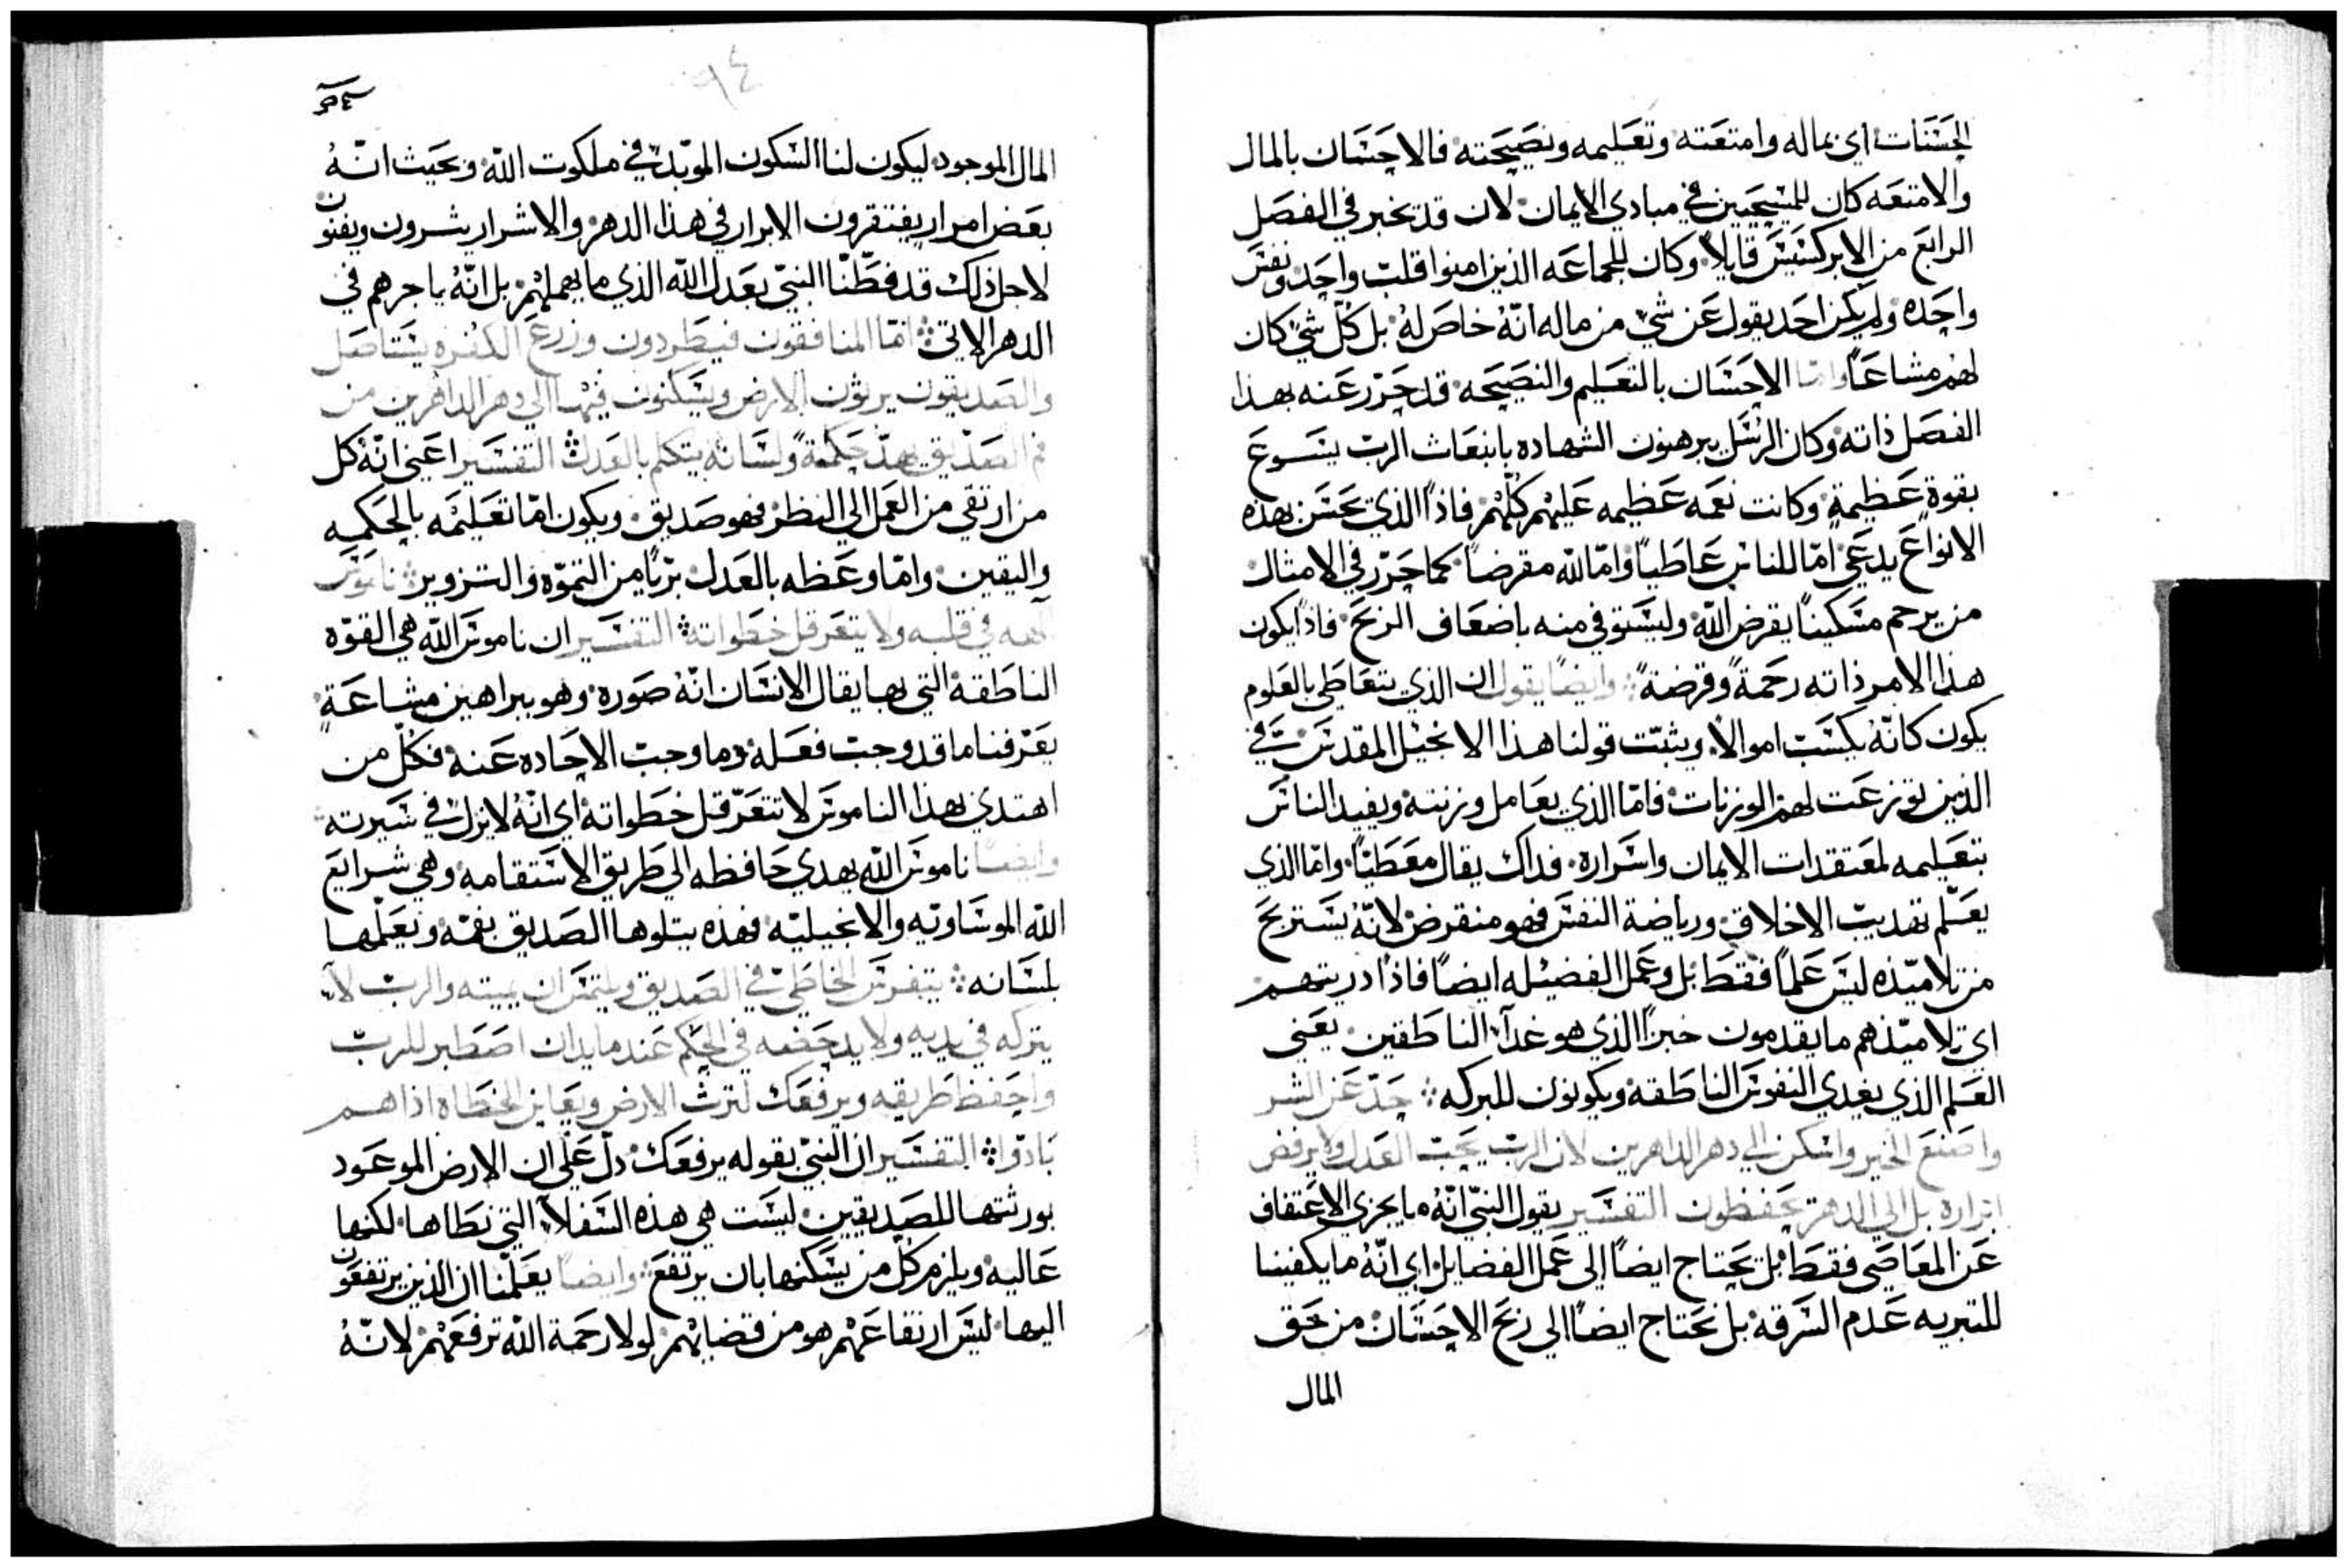 الحسنات اي بماله وامتعته وتعليمه ونصيحته فالاحسان بالمال
والامتعه كان للمسيحيين في مبادي الايمان لان قد تخبر في الفصل
الرابع من الابركسيس قايلاً وكان للجماعه الذين امنوا قلت واحد ونفس
واحده ولم يكن احد يقول عن شيء من ماله انّهُ خاصَ لهُ بل كلّ شيء كان
لهم مشاعاً وامّا الاحسان بالتعليم والنصيحه قد حرّر عنه بهذا
الفصل ذاته وكان الرسل يبرهنون الشهاده بانبعاث الربّ يسوع
بقوة عظيمة وكانت نعمه عظيمه عليهم كلّهم فاذاً الذي يحسن بهذه
الانواع يدعي امّا للناس عاطياً وامّا لله مقرضاً كما حرّر في الامثال
من يرحم مسكيناً يقرض الله وليستوفي منه باضعاف الربح فاذاً يكون
هذا الامر ذاته رحمةً وقرضةً وايضاً يقول ان الذي يتعاطي بالعلوم
يكون كانّهُ يكسب اموالاً ويثبّت قولنا هذا الانجيل المقدس في
الذين توزعت لهم الوزنات فامّا الذي يعامل وزنته ويفيد الناس
بتعليمه لمعتقدات الايمان واسراره فداك يقال معطيّاً وامّا الذي
يعلّم تهديب الاخلاق ورياضة النفس فهو منقرض لانّهُ يستربح
من تلاميّذه ليس علماً فقط بل وعمل الفضيله ايضاً فاذا دريتهم
اي تلاميّذهم ما يقدمون خبزاً الذي هو غدآء الناطقين يعني
العلم الذي يغدي النفوس الناطقه ويكونون للبركه حدّ عن الشر
واصنع الخير واسكن الي دهر الداهرين لان الربّ يحبّ العدل ولا يرفض
ابراره بل الي الدهر تحفظون التفسير يقول النبيّ انّهُ ما يجزي الاعتفاف
عن المعاصَي فقط بل تحتاج ايضاً الي عمل الفضايل اي انّهُ ما يكفينا
للتبريه عدم السرقه بل نحتاج ايضاً الي ربح الاحسان من حق
المال
٩٤
المال الموجود ليكون لنا السكون الموبّد في ملكوت الله وبحيث انّهُ
بعض امرار يفتقرون الابرار في هذا الدهر والاشرار يثرون ويغنون
لاجل ذلك قد فطّنّا النبيّ بعدل الله الذي ما يهملهم بل انّهُ ياجرهم في
الدهر الاتي امّا المنافقون فيطردون وزرع الكفره يستاصل
والصديقون يرثون الارض ويسكنون فيها الي دهر الداهرين من
فم الصديق يهدّ حكمةً ولسانه يتكلم بالعدل التفسير اعني انّهُ كل
من ارتقي من العمل الي النظر فهو صديق ويكون امّا تعليمه بالحكمه
واليقين وامّا وعظه بالعدل برّياً من التموّه والتزوير ناموس
الهه في قلبه ولا يتعرقل خطواته التفسير ان ناموس الله هي القوّه
الناطقة التي بها يقال الانسان انّهُ صوره وهو ببراهين مشاعةٍ
يعرّفنا ما قد وجب فعله وما وجب الاحاده عنه فكلّ من
اهتدي بهذا الناموس لا تتعرّقل خطواته اي انّهُ لا يزل في سيرته
وايضاً ناموس الله يهدي حافظه الي طريق الاستقامه وهي شرايع
الله الموساويّه والانجيليّه فهذه يتلوها الصديق بفمّه ويعلّمها
بلسانه يتفرّس الخاطيّ في الصديق ويلتمس ان يميته والربّ لا
يتركه في يديه ولا يدحضه في الحكم عند ما يدان اصطبر للربّ
واحفظ طريقه ويرفعك لترث الارض وتعاين الخطاه اذا هم
بادّوا التفسير ان النبيّ بقوله يرفعك دلّ علي ان الارض الموعود
بورثتها للصديقين ليست هي هذه السفلآء التي نطاها لكنها
عاليه ويلزم كلّ من يسكنها بان يرتفع وايضاً يعلّمنا ان الذين يرتفعون
اليها ليس ارتفاعهم هو من فضايلهم لولا رحمة الله ترفعهم لانّهُ